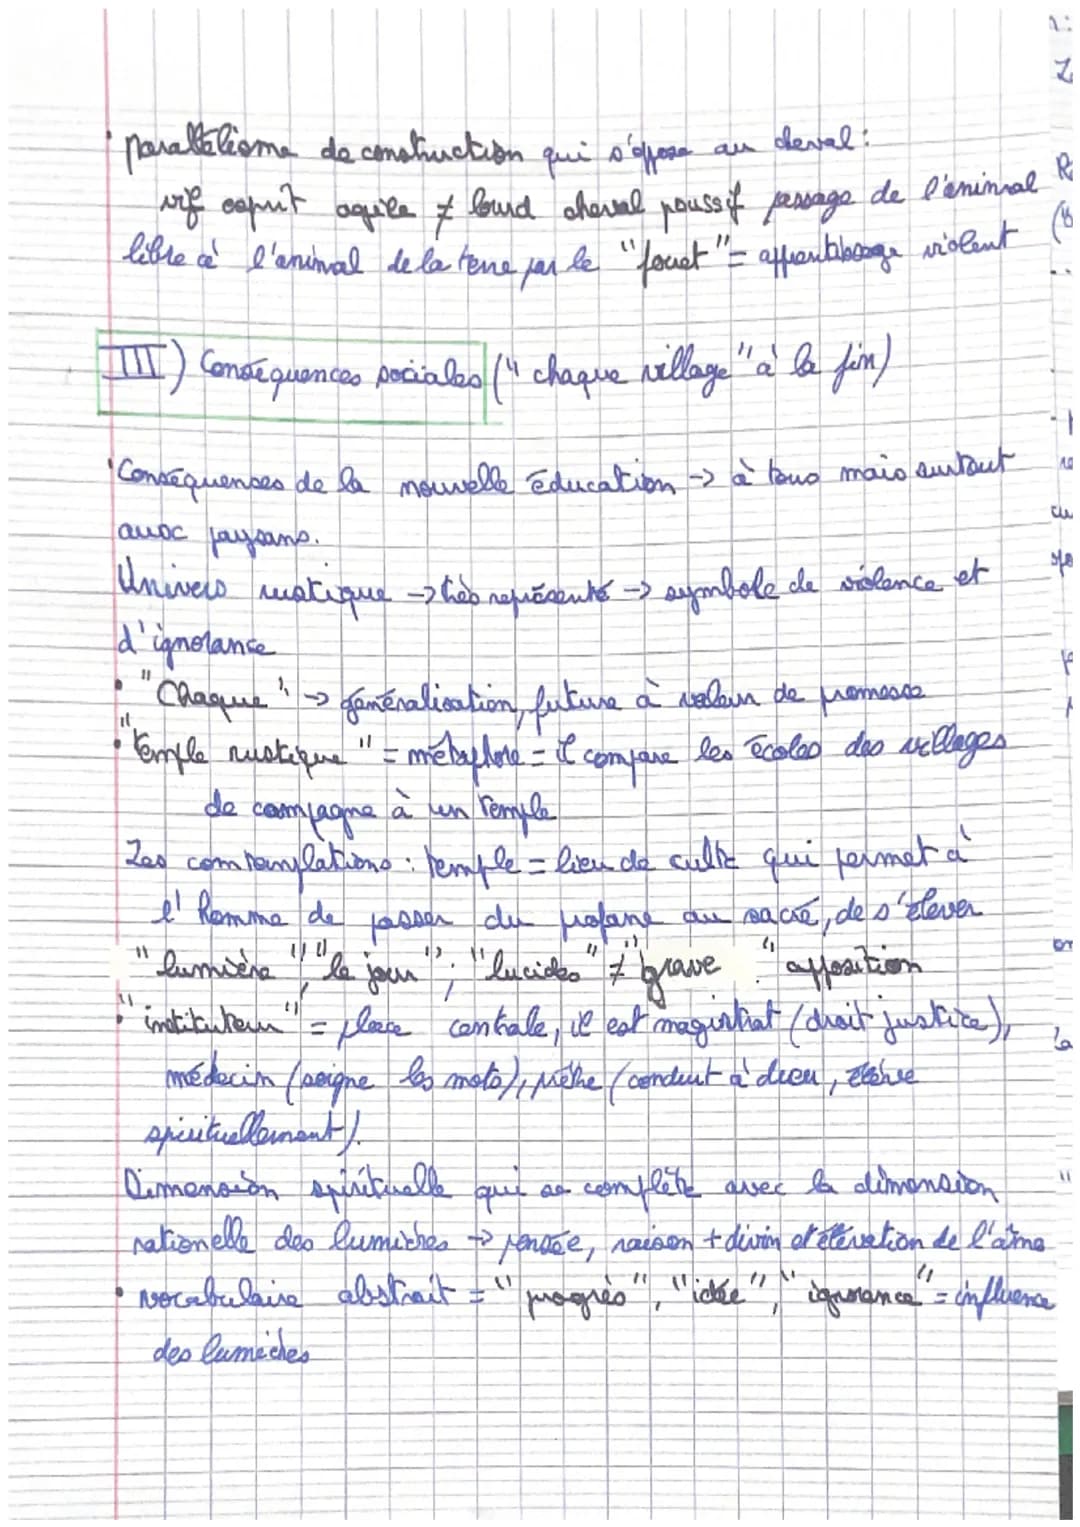 • parallélisme de construction qui s'oppose au cheval :
vif esprit agile ≠ lourd cheval poussif passage de l'animal
libre à l'animal de la terre par le "fouet" = apprentissage violent
III) Conséquences sociales ("chaque village" à la fin)
• Conséquences de la nouvelle éducation -> à tous mais surtout
aux paysans.
Univers rustique -> très représenté -> symbole de violence et
d'ignorance
• "Chaque" -> généralisation, future à valeur de promesse
• "temple rustique" = métaphore = il compare les écoles des villages
de campagne à un temple
Les contemplations : temple = lieu de culte qui permet à
l'homme de passer du profane au sacré, de s'élever
"lumière", "le jour", "lucides" ≠ "grave" apposition
• "instituteur" = place centrale, il est magistrat (droit justice),
médecin (soigne les mots), prêtre (conduit à dieu, élève
spirituellement).
Dimension spirituelle qui se complète avec la dimension
rationelle des lumières -> pensée, raison + divin et élévation de l'âme
• vocabulaire abstrait = "progrès", "idée", "ignorance" = influence
des lumières